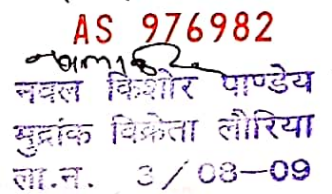 AS 976982
नवल किशोर पाण्डेय
मुद्रांक विक्रेता लौरिया
ला.न. 3/08-09